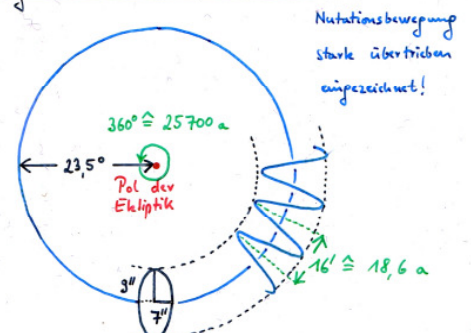 Nutationsbewegung
stark übertrieben
eingezeichnet!
360° ≙ 25700 a
23,5°
Pol der
Ekliptik
16' ≙ 18,6 a
9"
7"